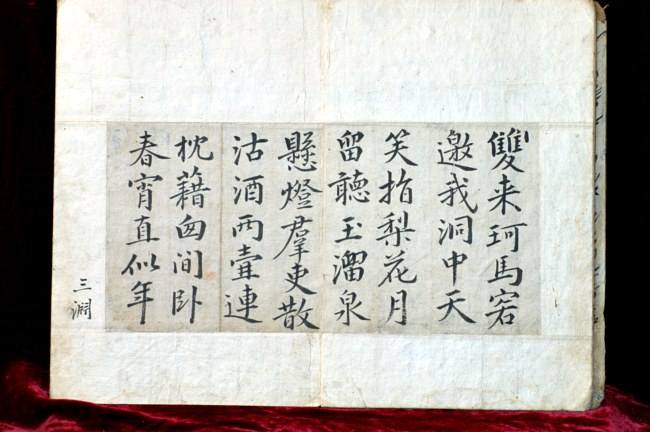 雙来珂馬宕
邀我洞中天
笑指梨花月
留聽玉溜泉
懸燈羣吏散
沽酒兩壺連
枕藉囱間卧
春宵直似年
三淵